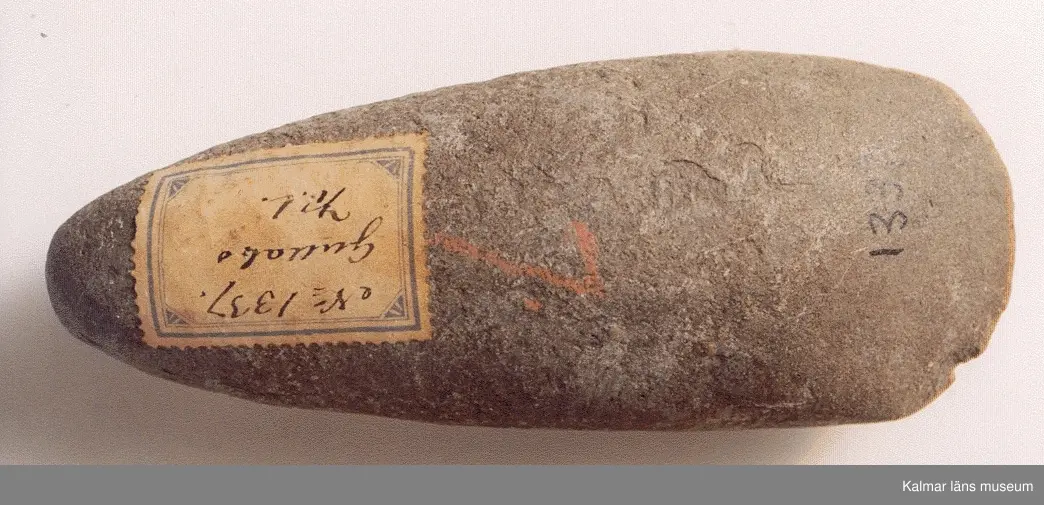 № 1337.
Gullabo
1337
Kalmar läns museum